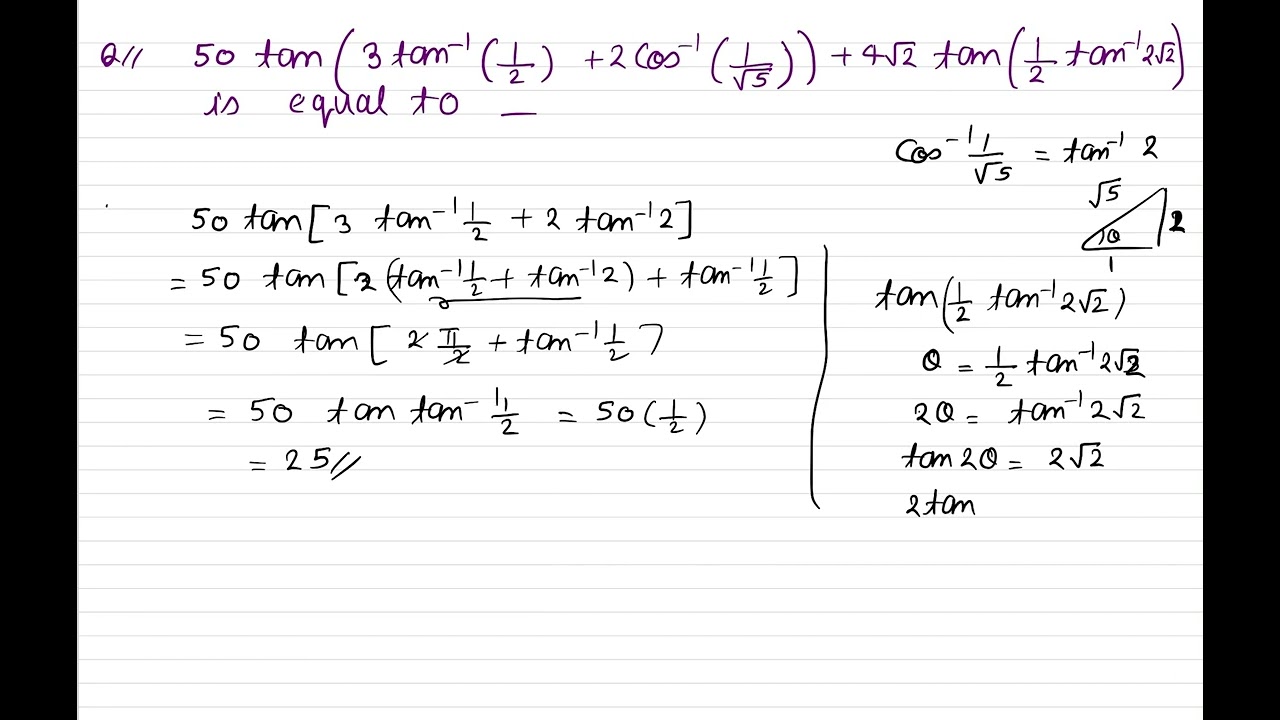 Q// 50 tan(3 tan⁻¹(1/2) + 2 Cos⁻¹(1/√5)) + 4√2 tan(1/2 tan⁻¹ 2√2)
is equal to __
Cos⁻¹ 1/√5 = tan⁻¹ 2
√5
2
θ
1
50 tan[3 tan⁻¹ 1/2 + 2 tan⁻¹ 2]
= 50 tan[2(tan⁻¹ 1/2 + tan⁻¹ 2) + tan⁻¹ 1/2]
= 50 tan[2 π/2 + tan⁻¹ 1/2]
= 50 tan tan⁻¹ 1/2 = 50(1/2)
= 25//
tan(1/2 tan⁻¹ 2√2)
θ = 1/2 tan⁻¹ 2√2
2θ = tan⁻¹ 2√2
tan 2θ = 2√2
2 tan